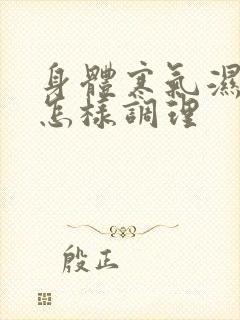 身體寒氣濕
怎樣調理
殷正